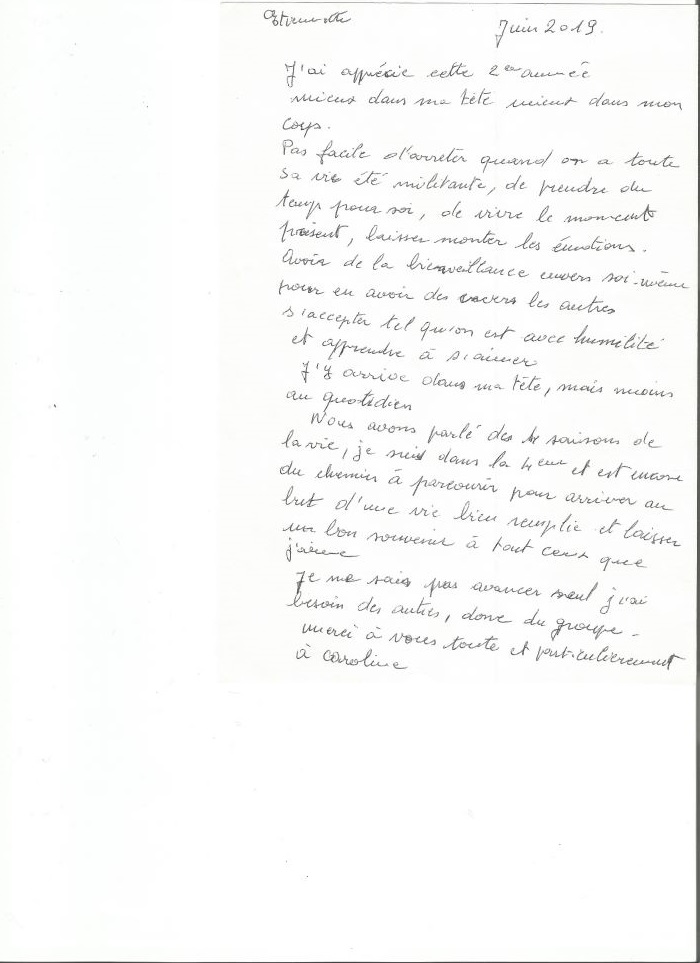 Juin 2019.
J'ai appréciè cette 2ème année
mieux dans ma tête mieux dans mon
corps.
Pas facile d'arreter quand on a toute
sa vie été militante, de prendre du
temps pour soi, de vivre le moment
présent, laisser monter les émotions.
Avoir de la bienveillance envers soi-même
pour en avoir des vers les autres
s'accepter tel qu'on est avec humilité
et apprendre à s'aimer
J'y arrive dans ma tête, mais moins
au quotidien
Nous avons parlé des 4 saisons de
la vie, je suis dans la 4eme et est encore
du chemin à parcourir pour arriver au
but d'une vie bien remplie et laisser
un bon souvenir à tout ceux que
j'aime
Je ne sais pas avancer seul j'ai
besoin des autres, donc du groupe -
merci à vous toute et particulièrement
à Caroline